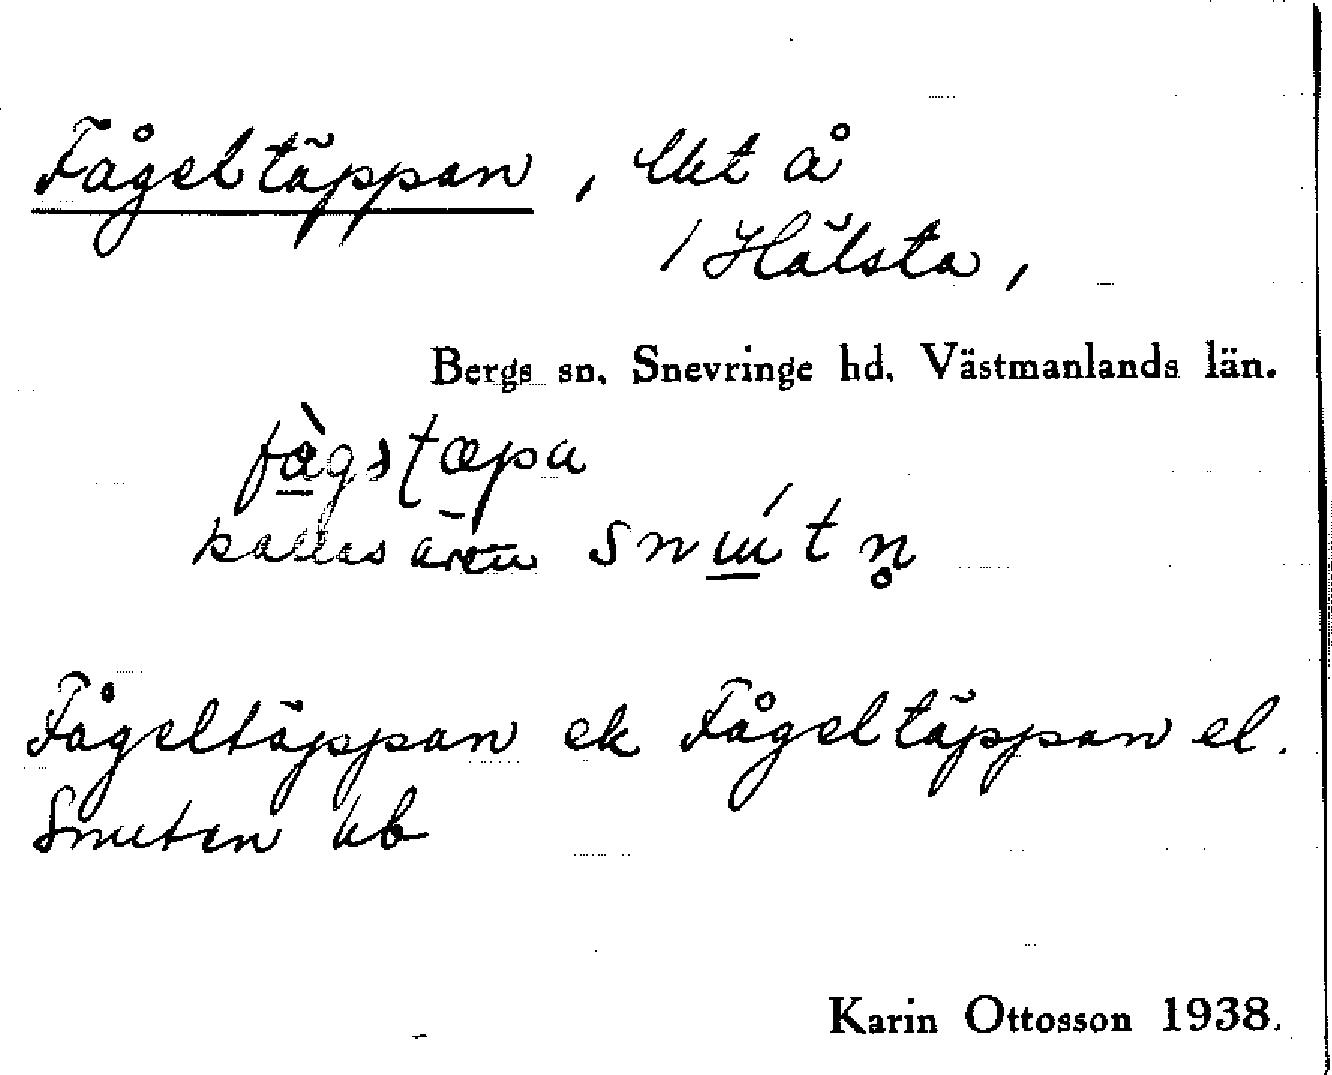 Fågeltäppan, lht å
1 Hälsta,
Bergs sn. Snevringe hd. Västmanlands län.
fàgstæpa
kallas även smútn̥
Fågeltäppan ek Fågeltäppan el.
Smuten ub
Karin Ottosson 1938.